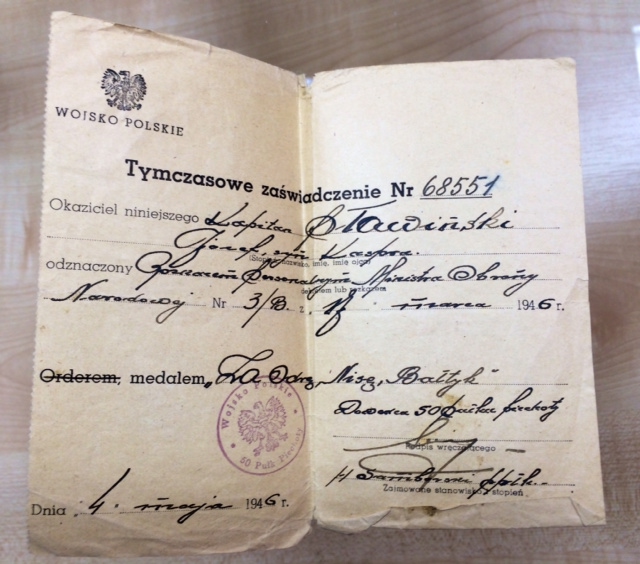 WOJSKO POLSKIE
Tymczasowe zaświadczenie Nr 68551
Okaziciel niniejszego Kapitan Sławiński
Józef, syn Kaspra.
(Stopień, nazwisko, imię, imię ojca)
odznaczony Rozkazem Personalnym Ministra Obrony
dekretem lub rozkazem
Narodowej Nr 3/B. z marca 1946 r.
Orderem, medalem „Za Odrę, Nisę, Bałtyk"
Dowódca 50 pułku piechoty
Podpis wręczającego
Samborski ppłk.
Zajmowane stanowisko i stopień
Dnia 4. maja 1946 r.
Wojsko Polskie
50 Pułk Piechoty